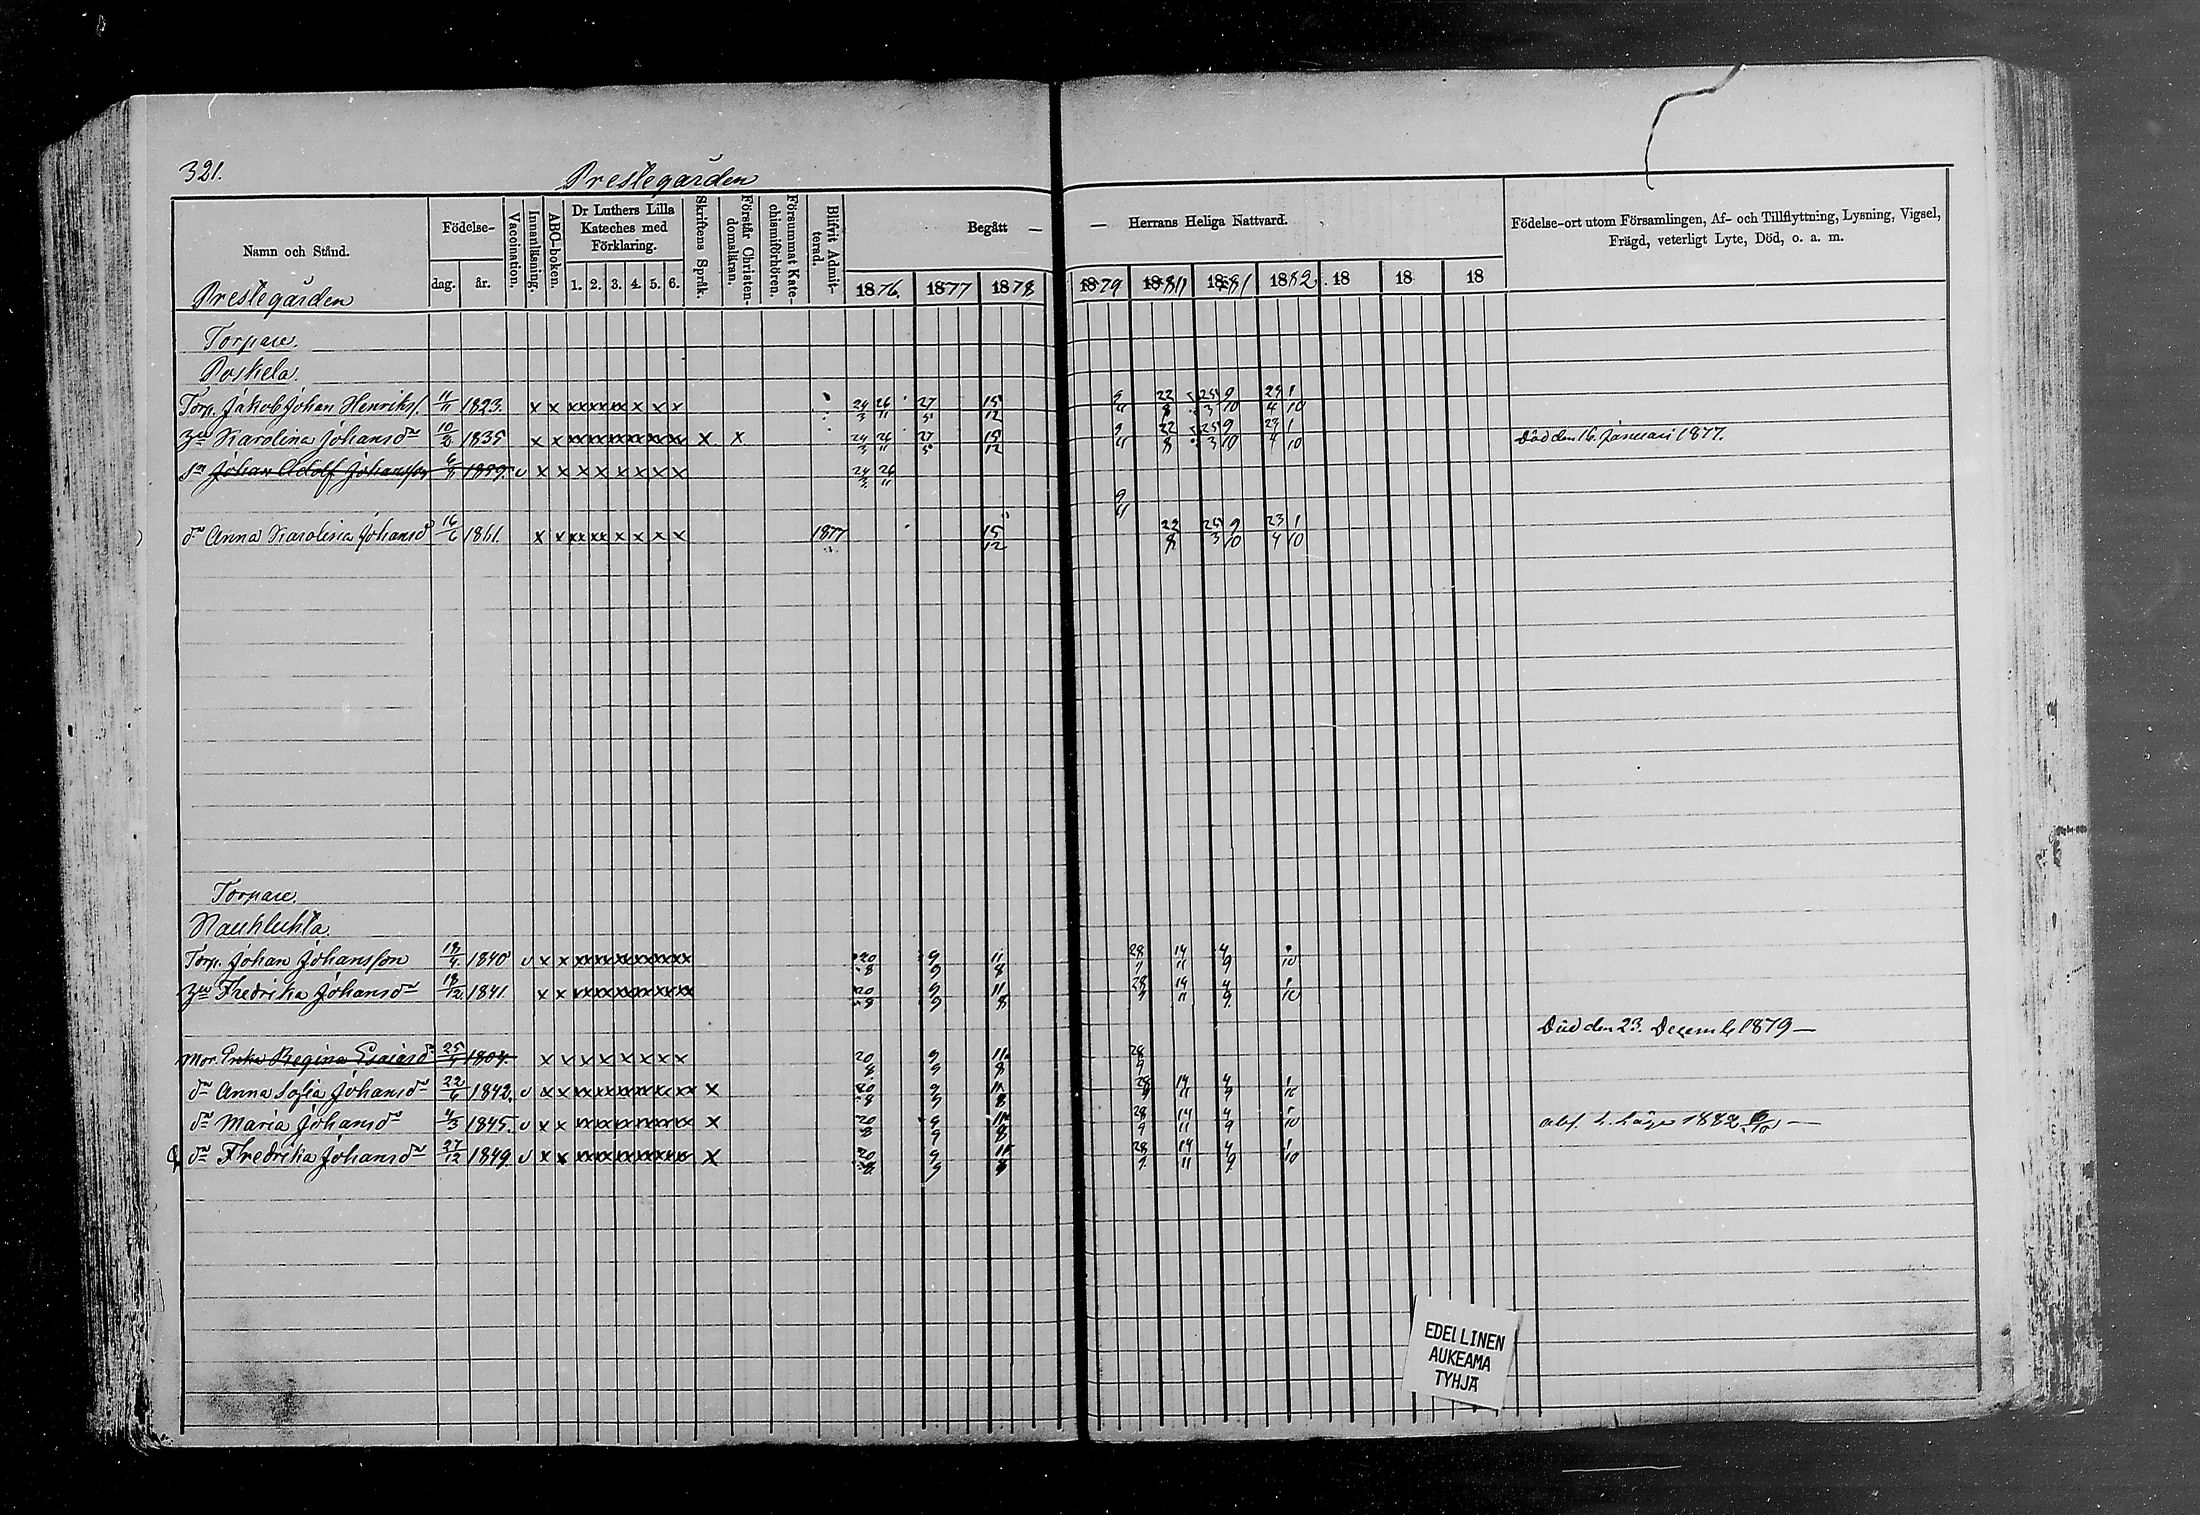 321.
Prestegården
Namn och Stånd.
Födelse-
dag.
år.
Vaccination.
Innanläsning.
ABC-boken.
Dr Luthers Lilla Kateches med Förklaring.
1. 2. 3. 4. 5. 6.
Skriftens Språk.
Förstår Christendomsläran.
Försummat Katechismiförhören.
Blifvit Admitterad.
Begått —
1876. 1877 1878
— Herrans Heliga Nattvard.
1879 1881 1882. 18 18 18
Födelse-ort utom Församlingen, Af- och Tillflyttning, Lysning, Vigsel,
Frägd, veterligt Lyte, Död, o. a. m.
Prestegården
Torpare.
Poskela.
Torp. Jakob Johan Henrikss. 11/11 1823. x x xx xx xx x x x 24/3 26/11 27/5 15/12 9/11 22/8 25/3 9/10 23/4 1/10
Karolina Johansdr 1835 x x x x 24/3 26/11 27/5 15/12 9/11 22/8 25/3 9/10 23/4 1/10 Död den 16. Januari 1877.
Sn Johan Adolf Johansson 1859. v x x x x x x x x 24/3 26/11
9/11
dr Anna Karolina Johansd 16/6 1861. x x xx xx x x x x 1877 15/12 22/8 25/3 9/10 23/4 1/10
Torpare.
Torp. Johan Johansson 1840 v x x 20/8 9/9 11/8 28/9 14/11 4/9 1/10
Fredrika Johansdr 18/12 1841. x x 20/8 9/9 11/8 28/9 14/11 4/9 1/10
Död den 23. Decemb. 1879 —
Mor. Regina Esaiasd 1804. x x x x x x x x 20/8 9/9 11/8 28/9
dr Anna Sofia Johansdr 22/6 1842. v x x x 20/8 9/9 11/8 28/9 14/11 4/9 1/10
dr Maria Johansdr 4/3 1845. v x x x 20/8 9/9 11/8 28/9 14/11 4/9 1/10 1882
dr Fredrika Johansdr 27/12 1849. v x x x 20/8 9/9 11/8 28/9 14/11 4/9 1/10
EDELLINEN
AUKEAMA
TYHJÄ